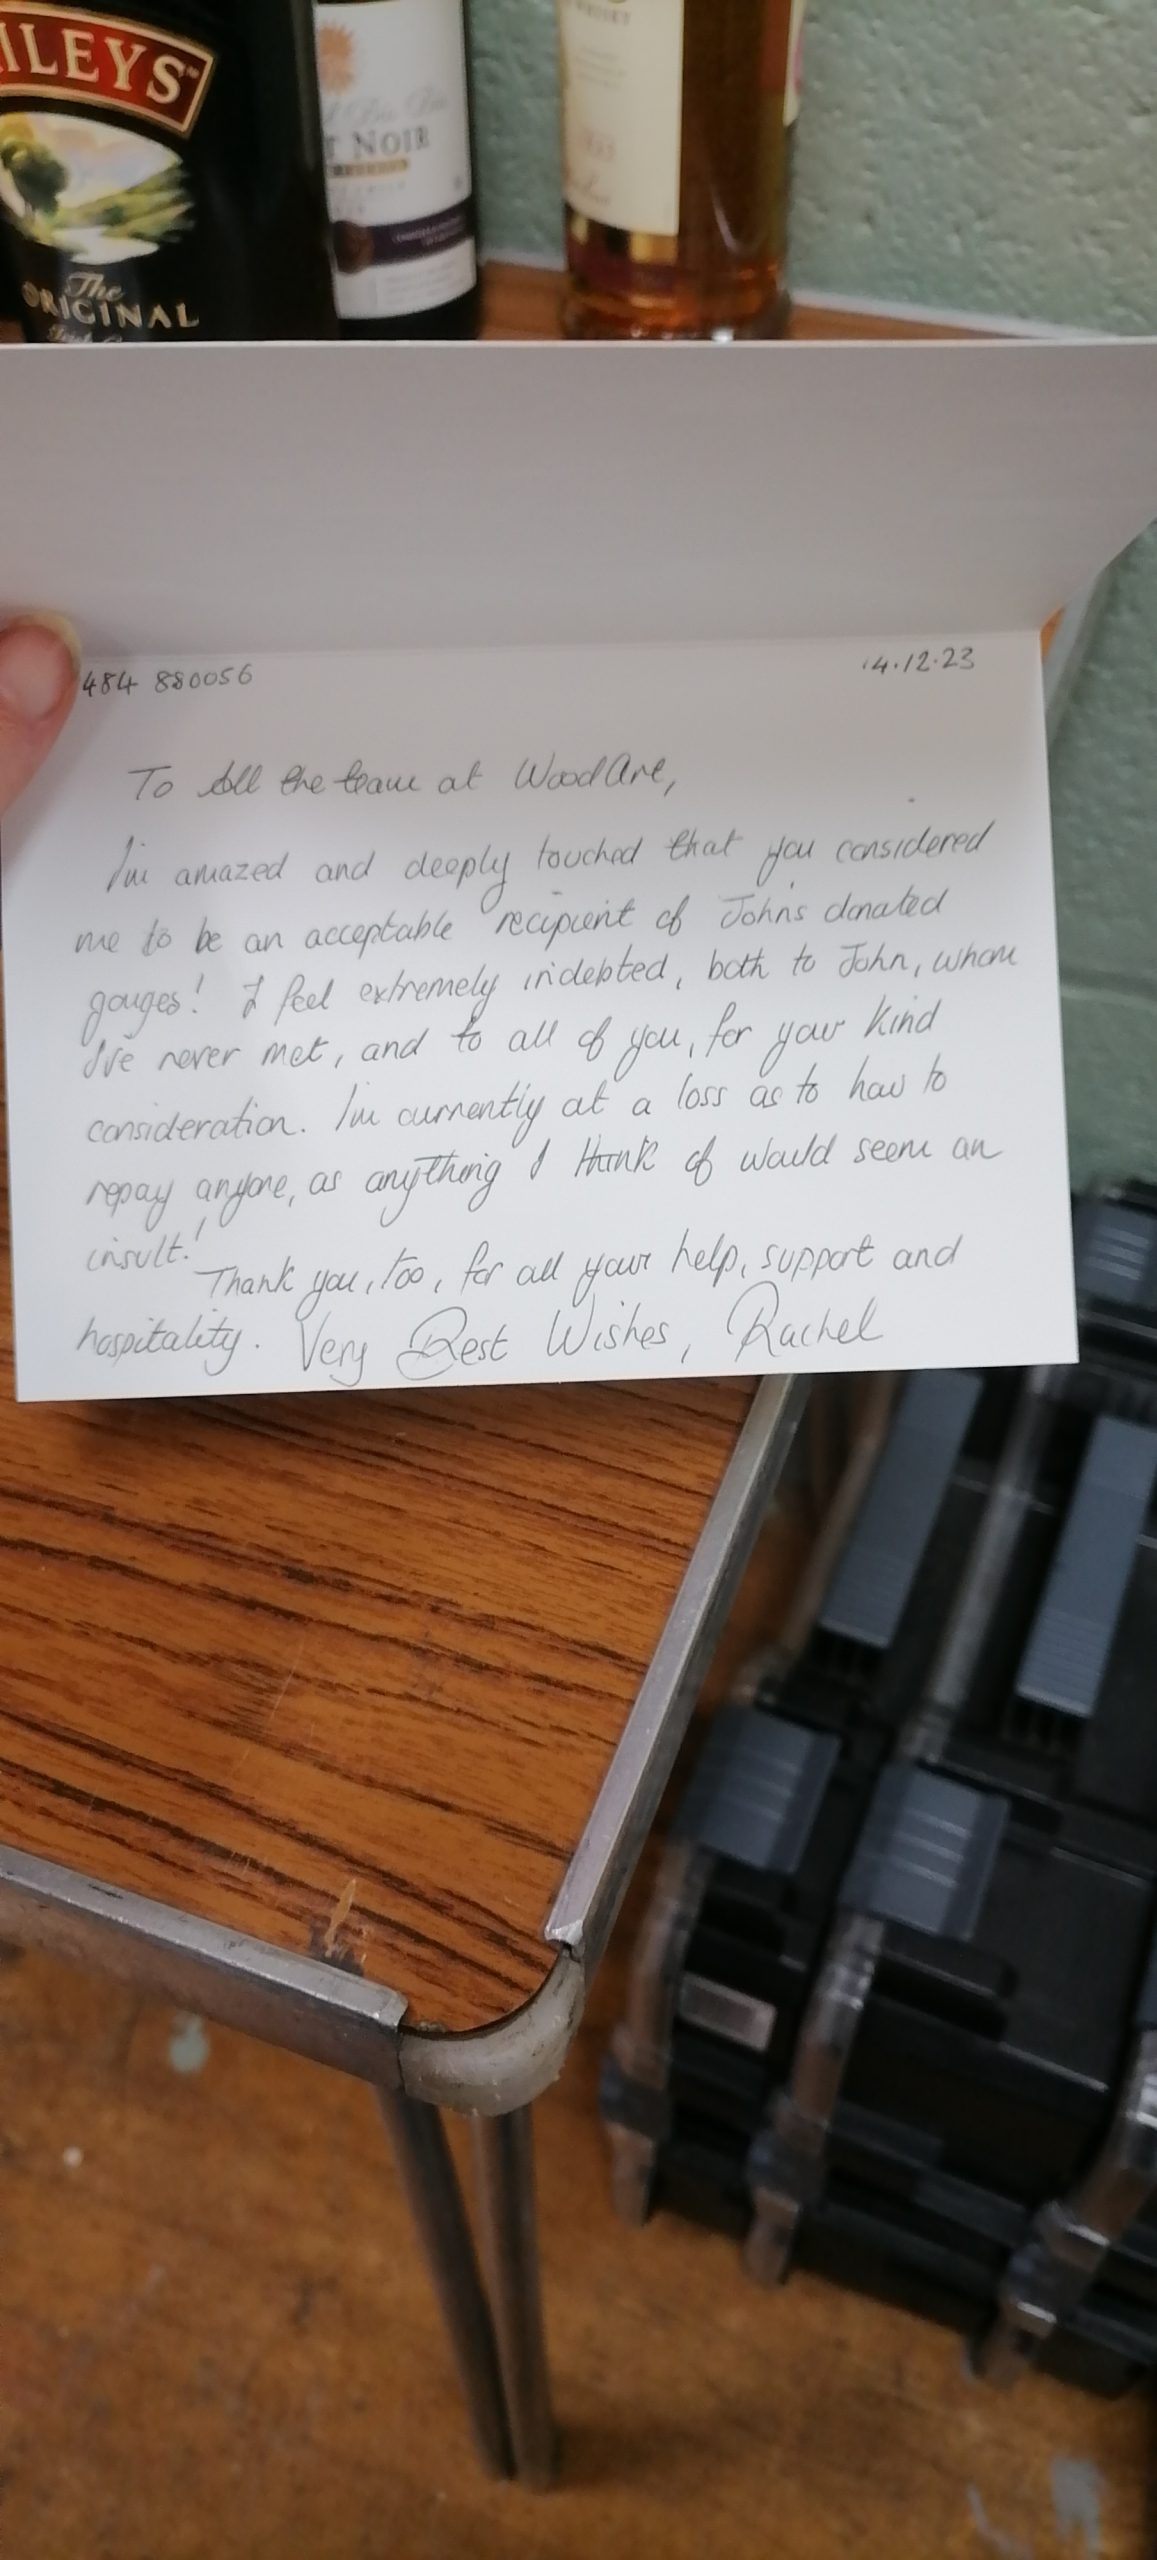 ILEYS™
The
ORIGINAL
T NOIR
RESERVE
WHISKY
484 880056
14.12.23
To All the team at WoodAre,
I'm amazed and deeply touched that you considered
me to be an acceptable recipient of John's donated
gouges! I feel extremely indebted, both to John, whom
I've never met, and to all of you, for your kind
consideration. I'm currently at a loss as to how to
repay anyone, as anything I think of would seem an
insult!
Thank you, too, for all your help, support and
hospitality. Very Best Wishes, Rachel